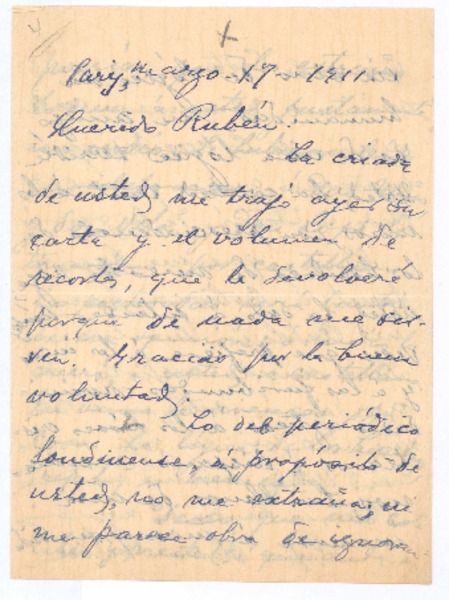 Pary, marzo - 17 - 1911.
Querido Rubén:
La criada
de usted, me trajo ayer su
carta y el volumen de
recortes, que le devolveré
porque de nada me sir-
ven. Gracias por la buena
voluntad.
Lo del periódico
londinense, á propósito de
usted, no me extraña; ni
me parece obra de